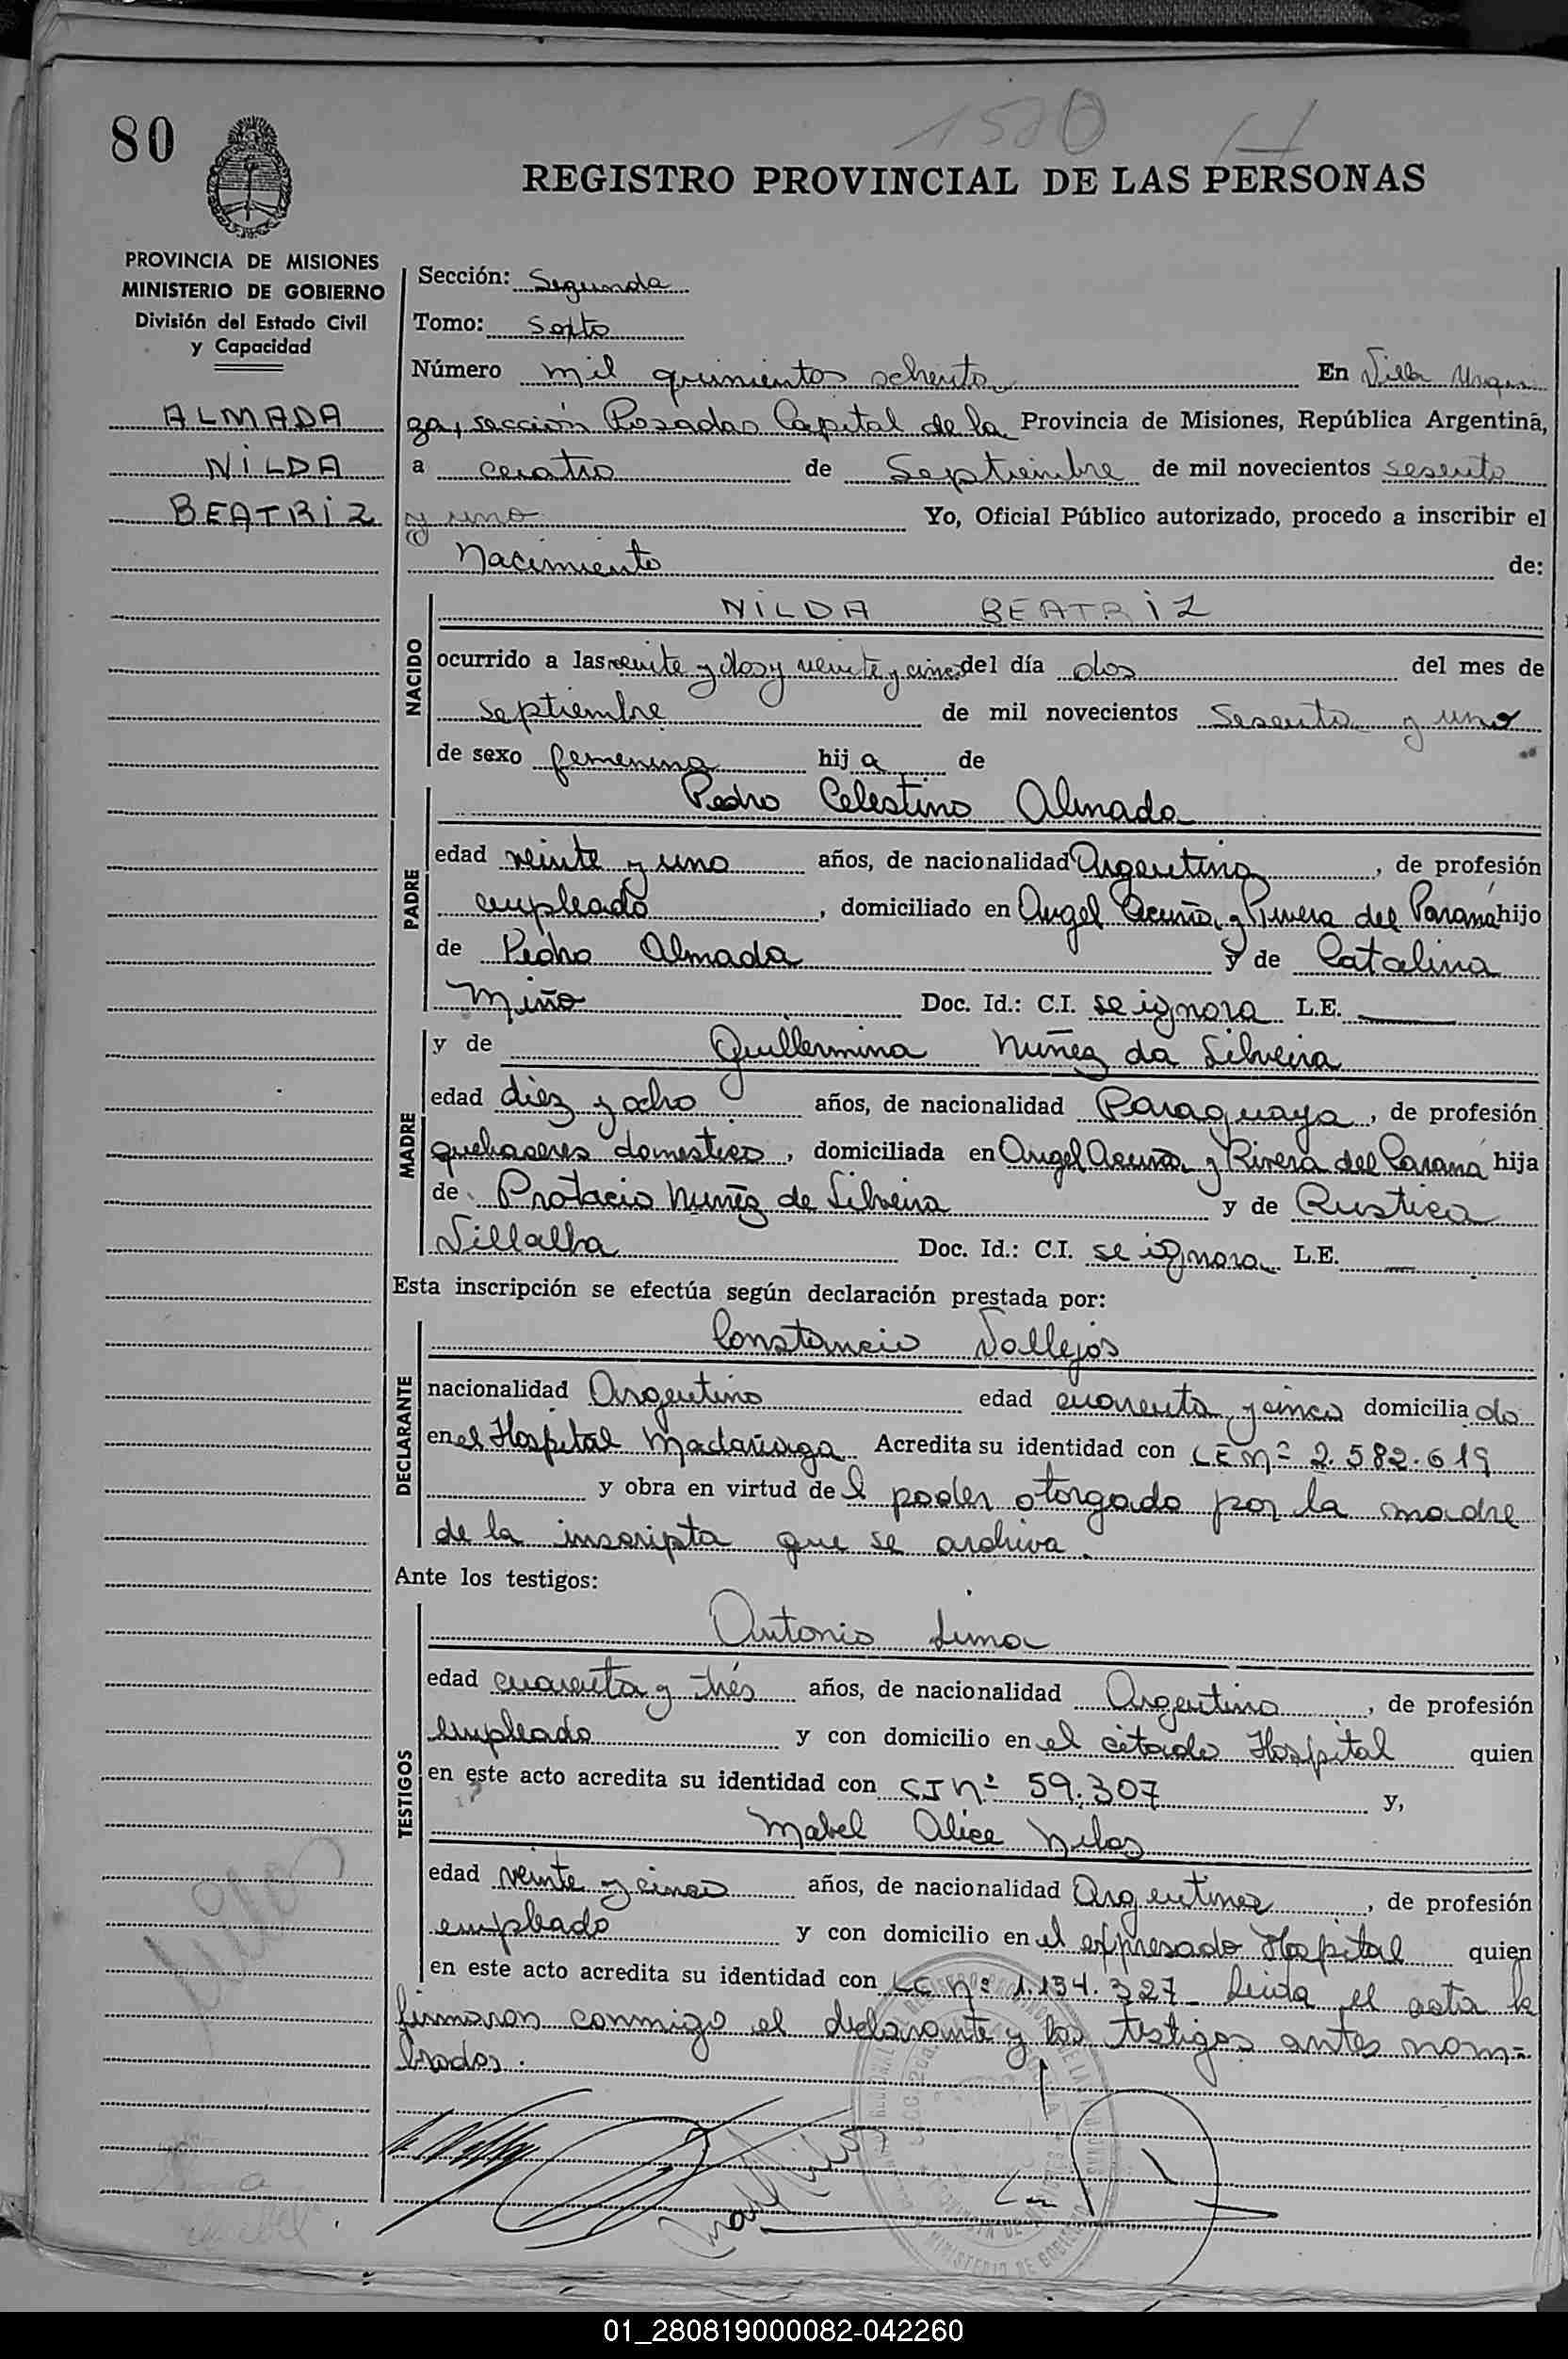 80
REGISTRO PROVINCIAL DE LAS PERSONAS
PROVINCIA DE MISIONES
MINISTERIO DE GOBIERNO
División del Estado Civil
y Capacidad
ALMADA
NILDA
BEATRIZ
Sección: Segunda
Tomo: Sexto
Número mil quinientos ochenta En Villa Urqui
za, sección Posadas Capital de la Provincia de Misiones, República Argentina,
a cuatro de Septiembre de mil novecientos sesenta
y uno Yo, Oficial Público autorizado, procedo a inscribir el
Nacimiento de:
NACIDO
NILDA BEATRIZ
ocurrido a las veinte y dos y veinte y cinco del día dos del mes de
septiembre de mil novecientos sesenta y uno
de sexo femenina hij a de
PADRE
Pedro Celestino Almada
edad veinte y uno años, de nacionalidad Argentina, de profesión
empleado, domiciliado en Angel Acuña y Rivera del Paraná hijo
de Pedro Almada y de Catalina
Miño Doc. Id.: C.I. se ignora L.E.
MADRE
y de Guillermina Nuñez da Silveira
edad diez y ocho años, de nacionalidad Paraguaya, de profesión
quehaseres domestico, domiciliada en Angel Acuña y Rivera del Paraná hija
de Protacio Nuñez de Silveira y de Rustica
Villalba Doc. Id.: C.I. se ignora L.E.
Esta inscripción se efectúa según declaración prestada por:
DECLARANTE
Constancio Vallejos
nacionalidad Argentino edad cuarenta y cinco domicilia do
en el Hospital Madariaga Acredita su identidad con LE Nº 2.582.619
y obra en virtud de l poder otorgado por la madre
de la inscripta que se archiva.
Ante los testigos:
TESTIGOS
Antonio Lima
edad cuarenta y trés años, de nacionalidad Argentino, de profesión
empleado y con domicilio en el citado Hospital quien
en este acto acredita su identidad con CI Nº 59.307 y,
Mabel Alice
edad veinte y cinco años, de nacionalidad Argentina, de profesión
empleado y con domicilio en el expresado Hospital quien
en este acto acredita su identidad con LC Nº 1.134.327 Leida el acta la
firmaron conmigo el declarante y los testigos antes nom=
brados.
01_280819000082-042260